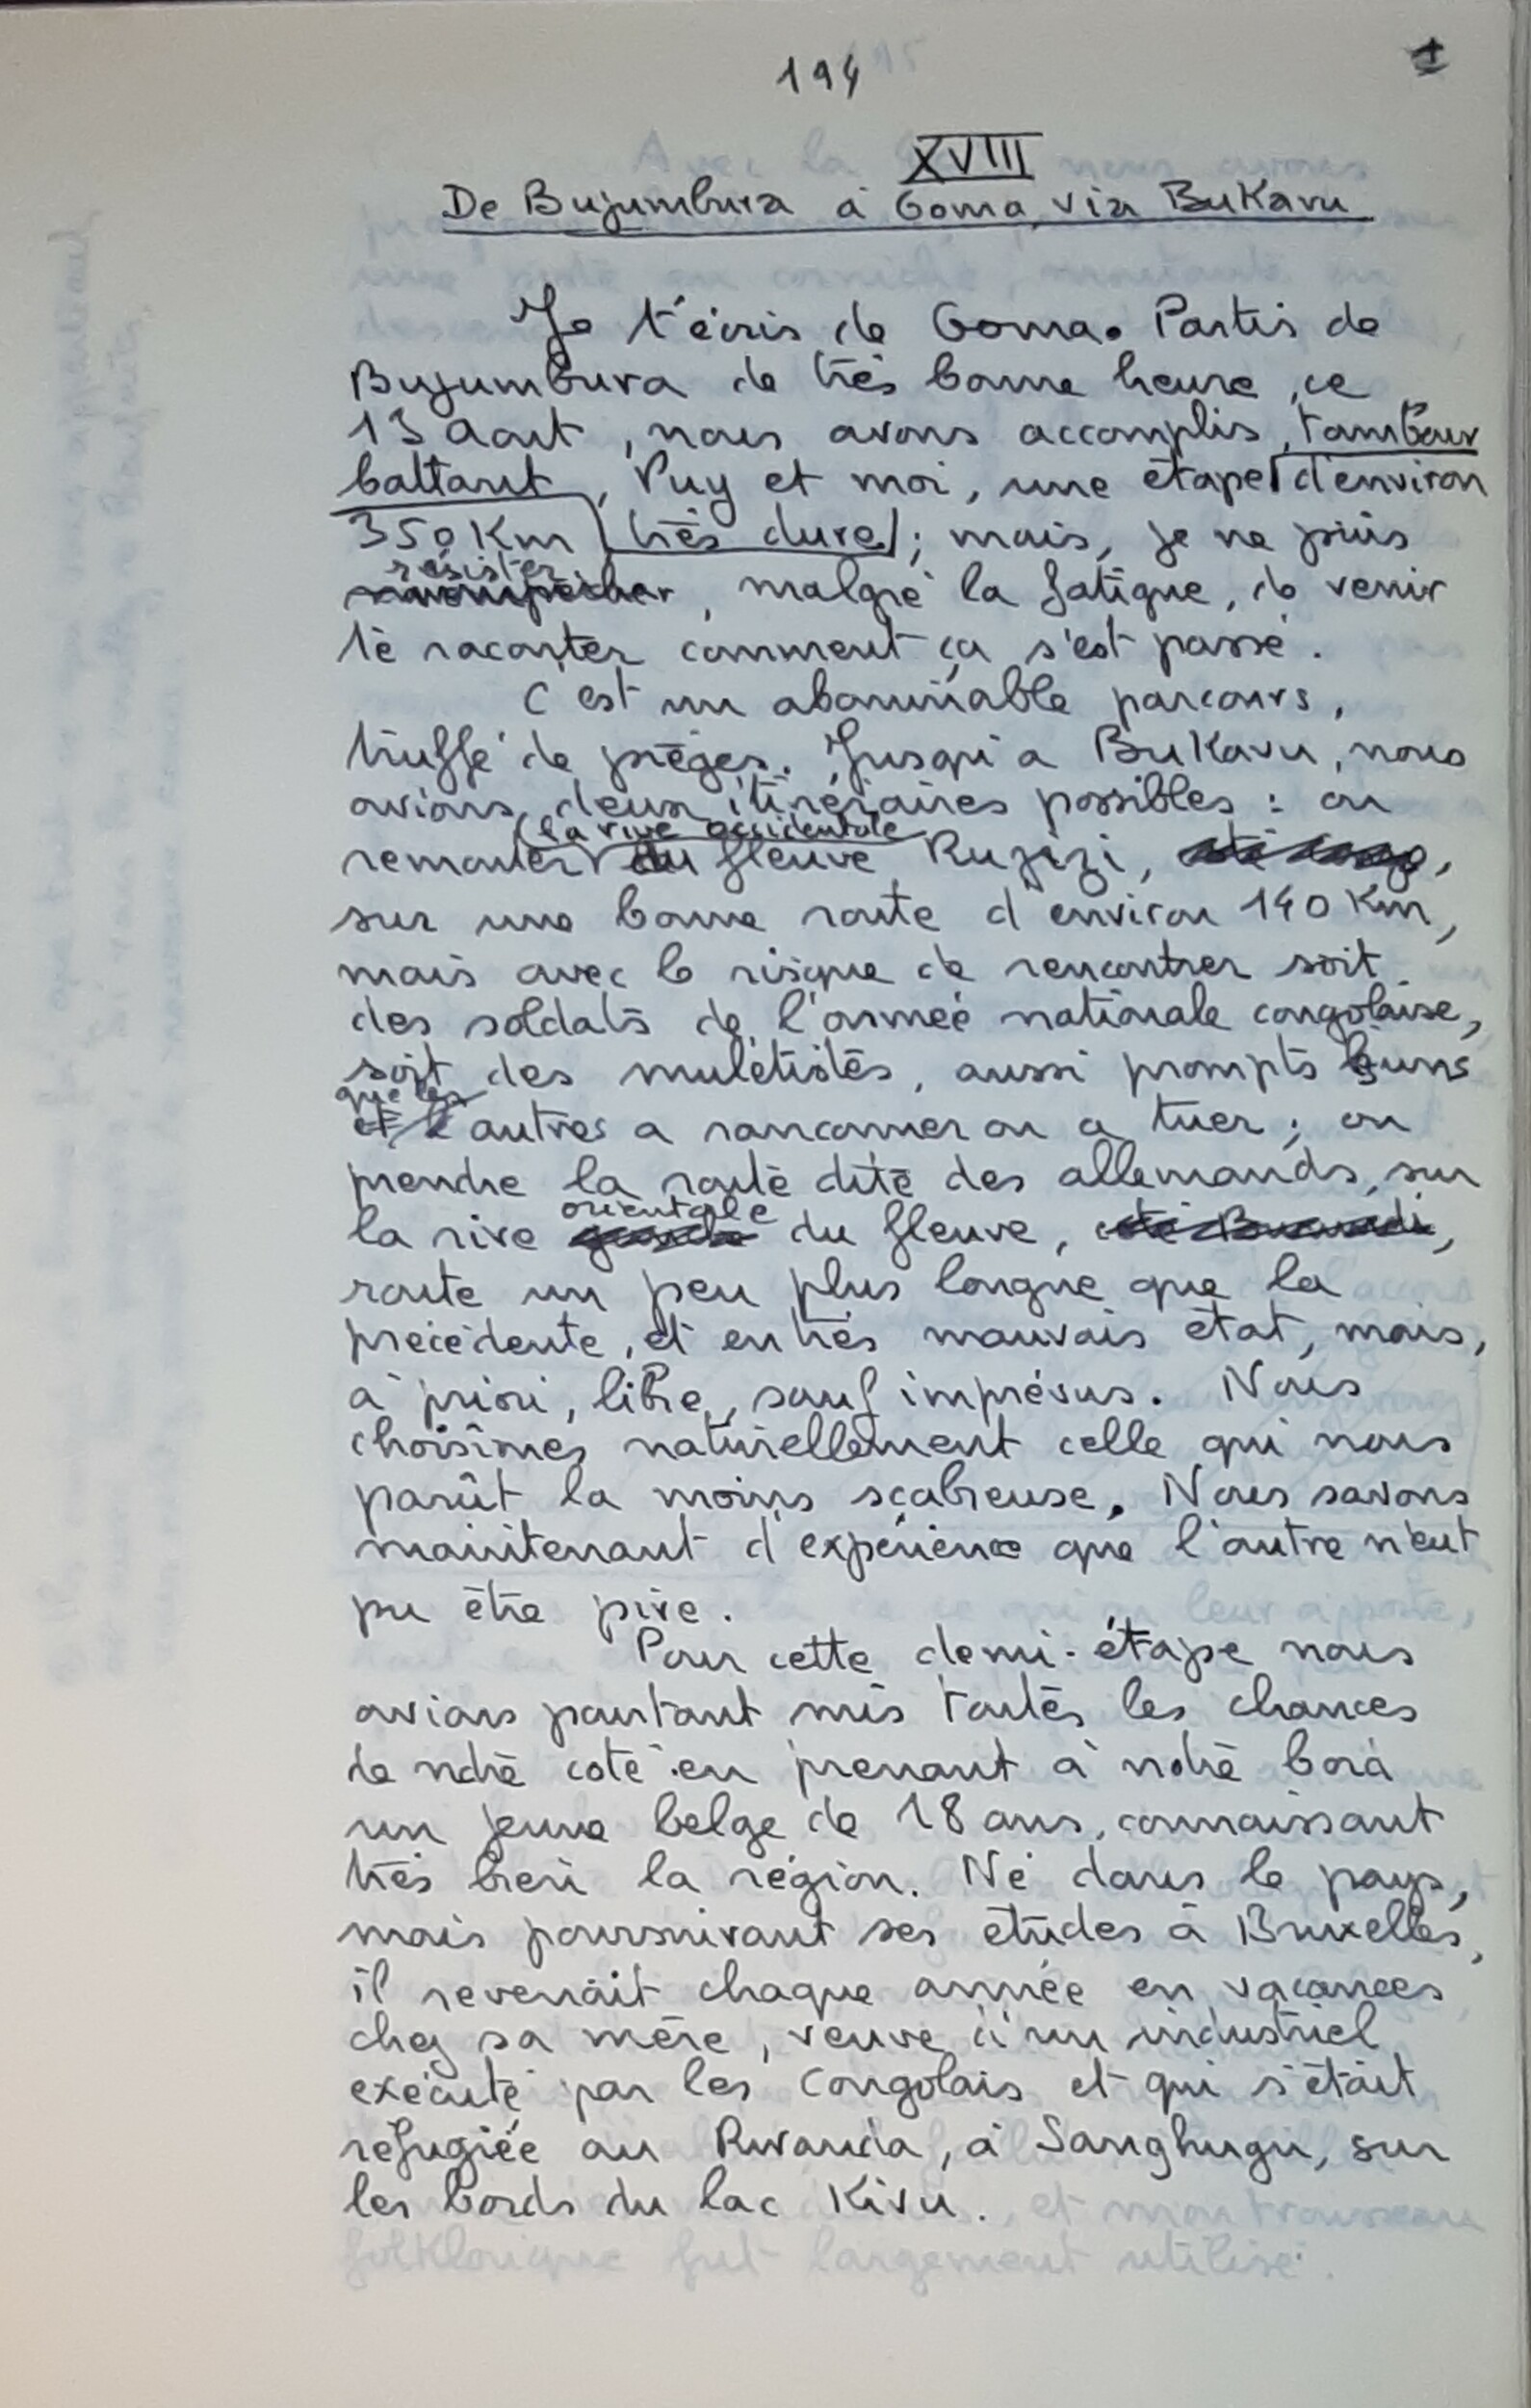 194
1
XVIII
De Bujumbura à Goma, via Bukavu
Je t'écris de Goma. Partis de
Bujumbura de très bonne heure, ce
13 Aout, nous avons accomplis, tambour
battant, Puy et moi, une étape d'environ
350 Km très dure ; mais, je ne puis
résister
m'empêcher, malgré la fatigue, de venir
te raconter comment ça s'est passé.
C'est un abominable parcours,
truffé de pièges. Jusqu'à Bukavu, nous
avions deux itinéraires possibles : ou
la rive occidentale
remonter du fleuve Ruzizi,
sur une bonne route d'environ 140 Km,
mais avec le risque de rencontrer soit
des soldats de l'armée nationale congolaise,
soit des mulétistes, aussi prompts les uns
que les
et l'autres a ranconner ou a tuer ; ou
prendre la route dite des allemands, sur
orientale
la rive gauche du fleuve, côté Burundi,
route un peu plus longue que la
précédente, et en très mauvais état, mais,
à priori, libre, sauf imprévus. Nous
choisîmes naturellement celle qui nous
parût la moins scabreuse. Nous savons
maintenant d'expérience que l'autre n'eut
pu être pire.
Pour cette demi-étape nous
avions pourtant mis toutes les chances
de notre coté en prenant à notre bord
un jeune belge de 18 ans, connaissant
très bien la région. Né dans le pays,
mais poursuivant ses études à Bruxelles,
il revenait chaque année en vacances
chez sa mère, veuve d'un industriel
exécuté par les Congolais et qui s'était
réfugiée au Rwanda, à Sanghugu, sur
les bords du lac Kivu.